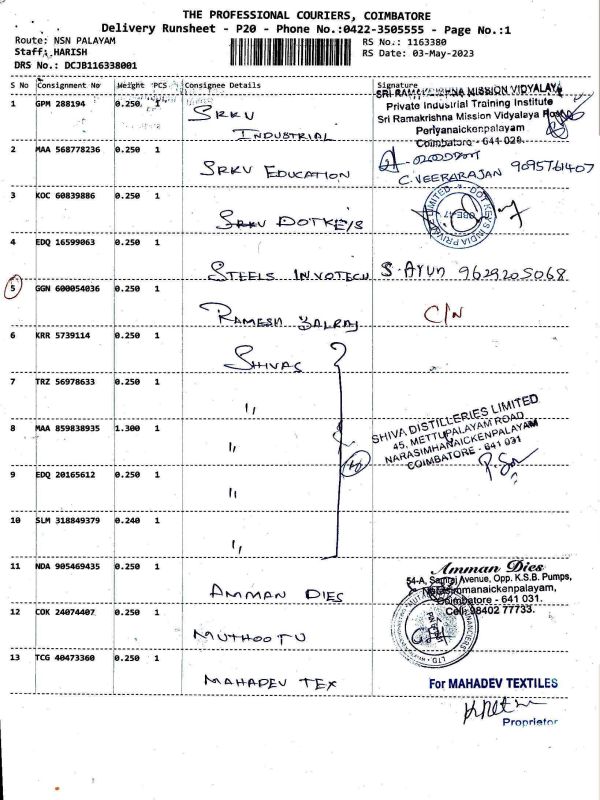 THE PROFESSIONAL COURIERS, COIMBATORE
Delivery Runsheet - P20 - Phone No.:0422-3505555 - Page No.:1
Route: NSN PALAYAM
Staff: HARISH
DRS No.: DCJB116338001
RS No.: 1163380
RS Date: 03-May-2023
S No Consignment No Weight PCS Consignee Details Signature
1 GPM 288194 0.250 1 SRKV
INDUSTRIAL
SRI RAMAKRISHNA MISSION VIDYALAYA
Private Industrial Training Institute
Sri Ramakrishna Mission Vidyalaya Post
Periyanaickenpalayam
Coimbatore - 641 020.
2 MAA 568778236 0.250 1
SRKV EDUCATION
C. VEERARAJAN 9095761407
3 KOC 60839886 0.250 1
SRKV DOTKEYS
DOT KEYS INDIA PRIVATE LIMITED
4 EDQ 16599063 0.250 1
STEELS INVOTECH S. Arun 9629205068
5 GGN 600054036 0.250 1
RAMESH BALRAJ C/N
6 KRR 5739114 0.250 1
SHIVAS
7 TRZ 56978633 0.250 1
"
8 MAA 859838935 1.300 1
"
SHIVA DISTILLERIES LIMITED
45, METTUPALAYAM ROAD
NARASIMHANAICKENPALAYAM
COIMBATORE - 641 031
9 EDQ 20165612 0.250 1
"
10 SLM 318849379 0.240 1
"
11 NDA 905469435 0.250 1
AMMAN DIES
Amman Dies
54-A, Samraj Avenue, Opp. K.S.B. Pumps,
Narasimmanaickenpalayam,
Coimbatore - 641 031.
Cell: 98402 77733.
12 COK 24074407 0.250 1
MUTHOOTU
13 TCG 40473360 0.250 1
MAHADEV TEX
For MAHADEV TEXTILES
Proprietor